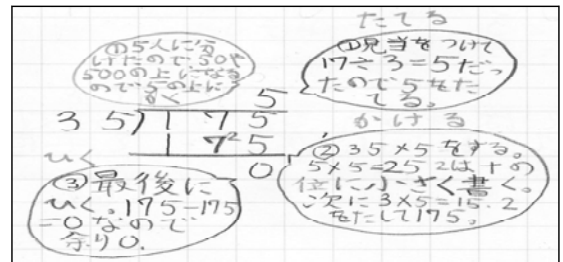 たてる
①5人に分
けたので50や
500の上になる
ので5の上に
かく
①見当をつけて
17÷3=5だっ
たので5をた
てる。
5
35)175
1 7²5
0
かける
②35×5をする。
5×5=25 2は十の
位に小さく書く。
次に3×5=15.2
をたして175。
ひく
③最後に
ひく。175-175
=0なので
余り0.